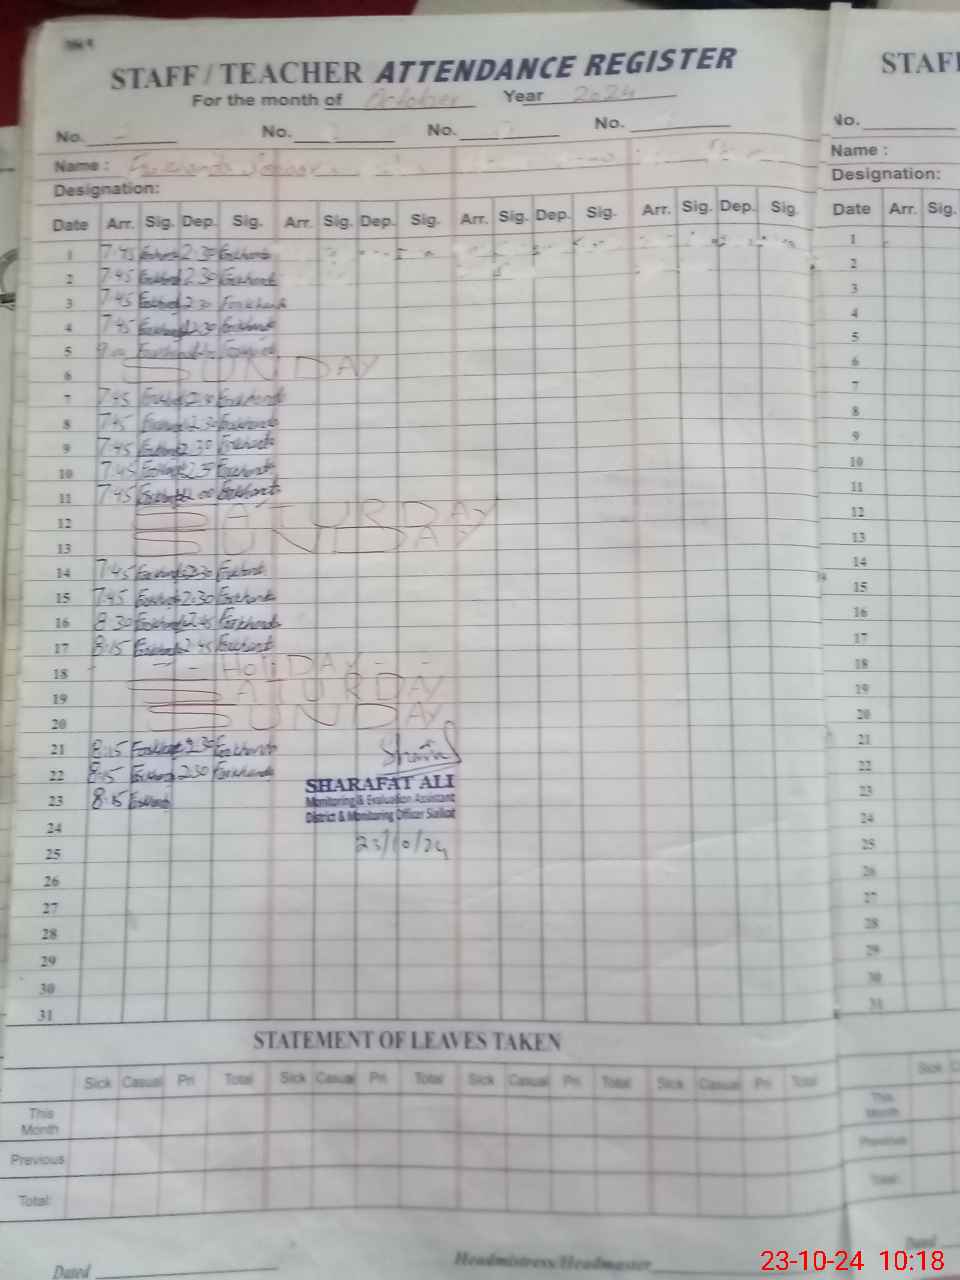 STAFF / TEACHER ATTENDANCE REGISTER
STAFF
For the month of October Year 2024
No. No. No. No.
No.
Name : Farkhanda
Name :
Designation:
Designation:
Date Arr. Sig. Dep. Sig. Arr. Sig. Dep. Sig. Arr. Sig. Dep. Sig. Arr. Sig. Dep. Sig.
Date Arr. Sig.
1 7:45 Farkhanda 2:30 Farkhanda
2 7:45 Farkhanda 2:30 Farkhanda
3 7:45 Farkhanda 2:30 Farkhanda
4 7:45 Farkhanda 12:30 Farkhanda
5
6 SUNDAY
7 7:45 Farkhanda 2:30 Farkhanda
8 7:45 Farkhanda 2:30 Farkhanda
9 7:45 Farkhanda 2:30 Farkhanda
10 7:45 Farkhanda Farkhanda
11 7:45 Farkhanda Farkhanda
12 SATURDAY
13 SUNDAY
14 7:45 Farkhanda 2:30 Farkhanda
15 7:45 Farkhanda 2:30 Farkhanda
16 8:30 Farkhanda 2:45 Farkhanda
17 8:15 Farkhanda 2:45 Farkhanda
18 - - HOLIDAY - -
19 SATURDAY
20 SUNDAY
21 8:15 Farkhanda 2:30 Farkhanda
22 8:15 Farkhanda 2:30 Farkhanda
23 8:15 Farkhanda
SHARAFAT ALI
Monitoring & Evaluation Assistant
District & Monitoring Officer Sialkot
23/10/24
24
25
26
27
28
29
30
31
1
2
3
4
5
6
7
8
9
10
11
12
13
14
15
16
17
18
19
20
21
22
23
24
25
26
27
28
29
30
31
STATEMENT OF LEAVES TAKEN
Sick Casual Pri Total Sick Casual Pri Total Sick Casual Pri Total Sick Casual Pri Total
Sick
This Month
This Month
Previous
Previous
Total:
Total:
Dated Headmistress/Headmaster
Dated
23-10-24 10:18